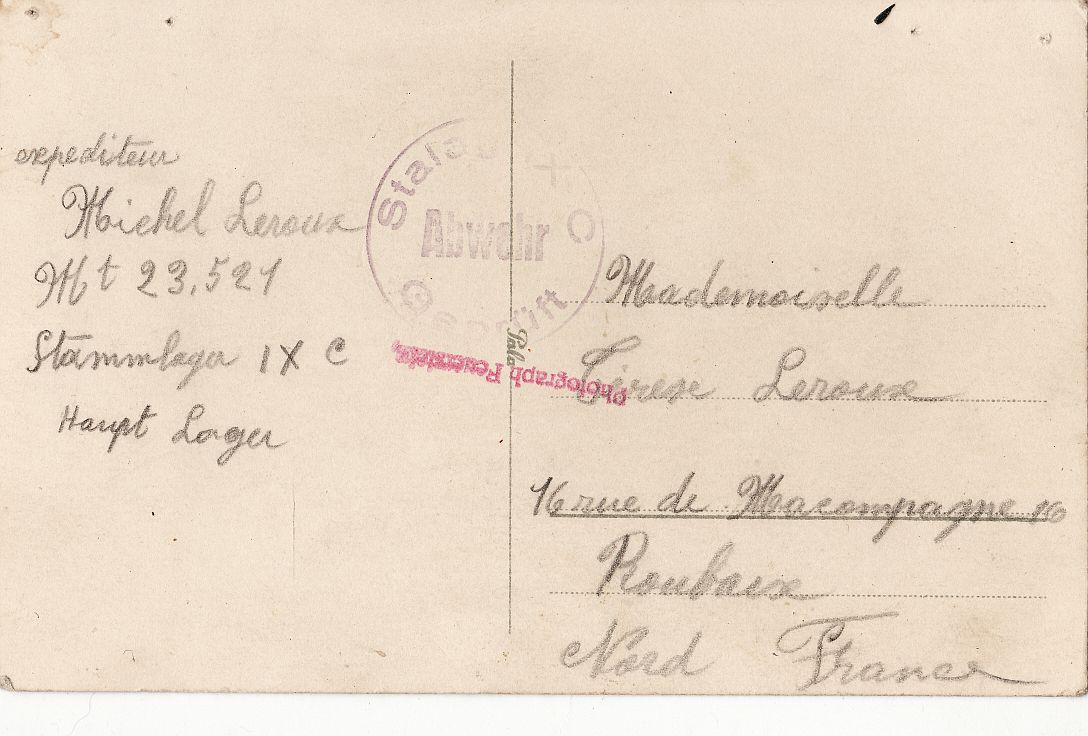 expediteur
Michel Leroux
Mt 23.521
Stammlager IX C
Haupt Lager
Stala C
Abwehr
Photograph
Mademoiselle
Leroux
16 rue de Macompagne 16
Roubaix
Nord France